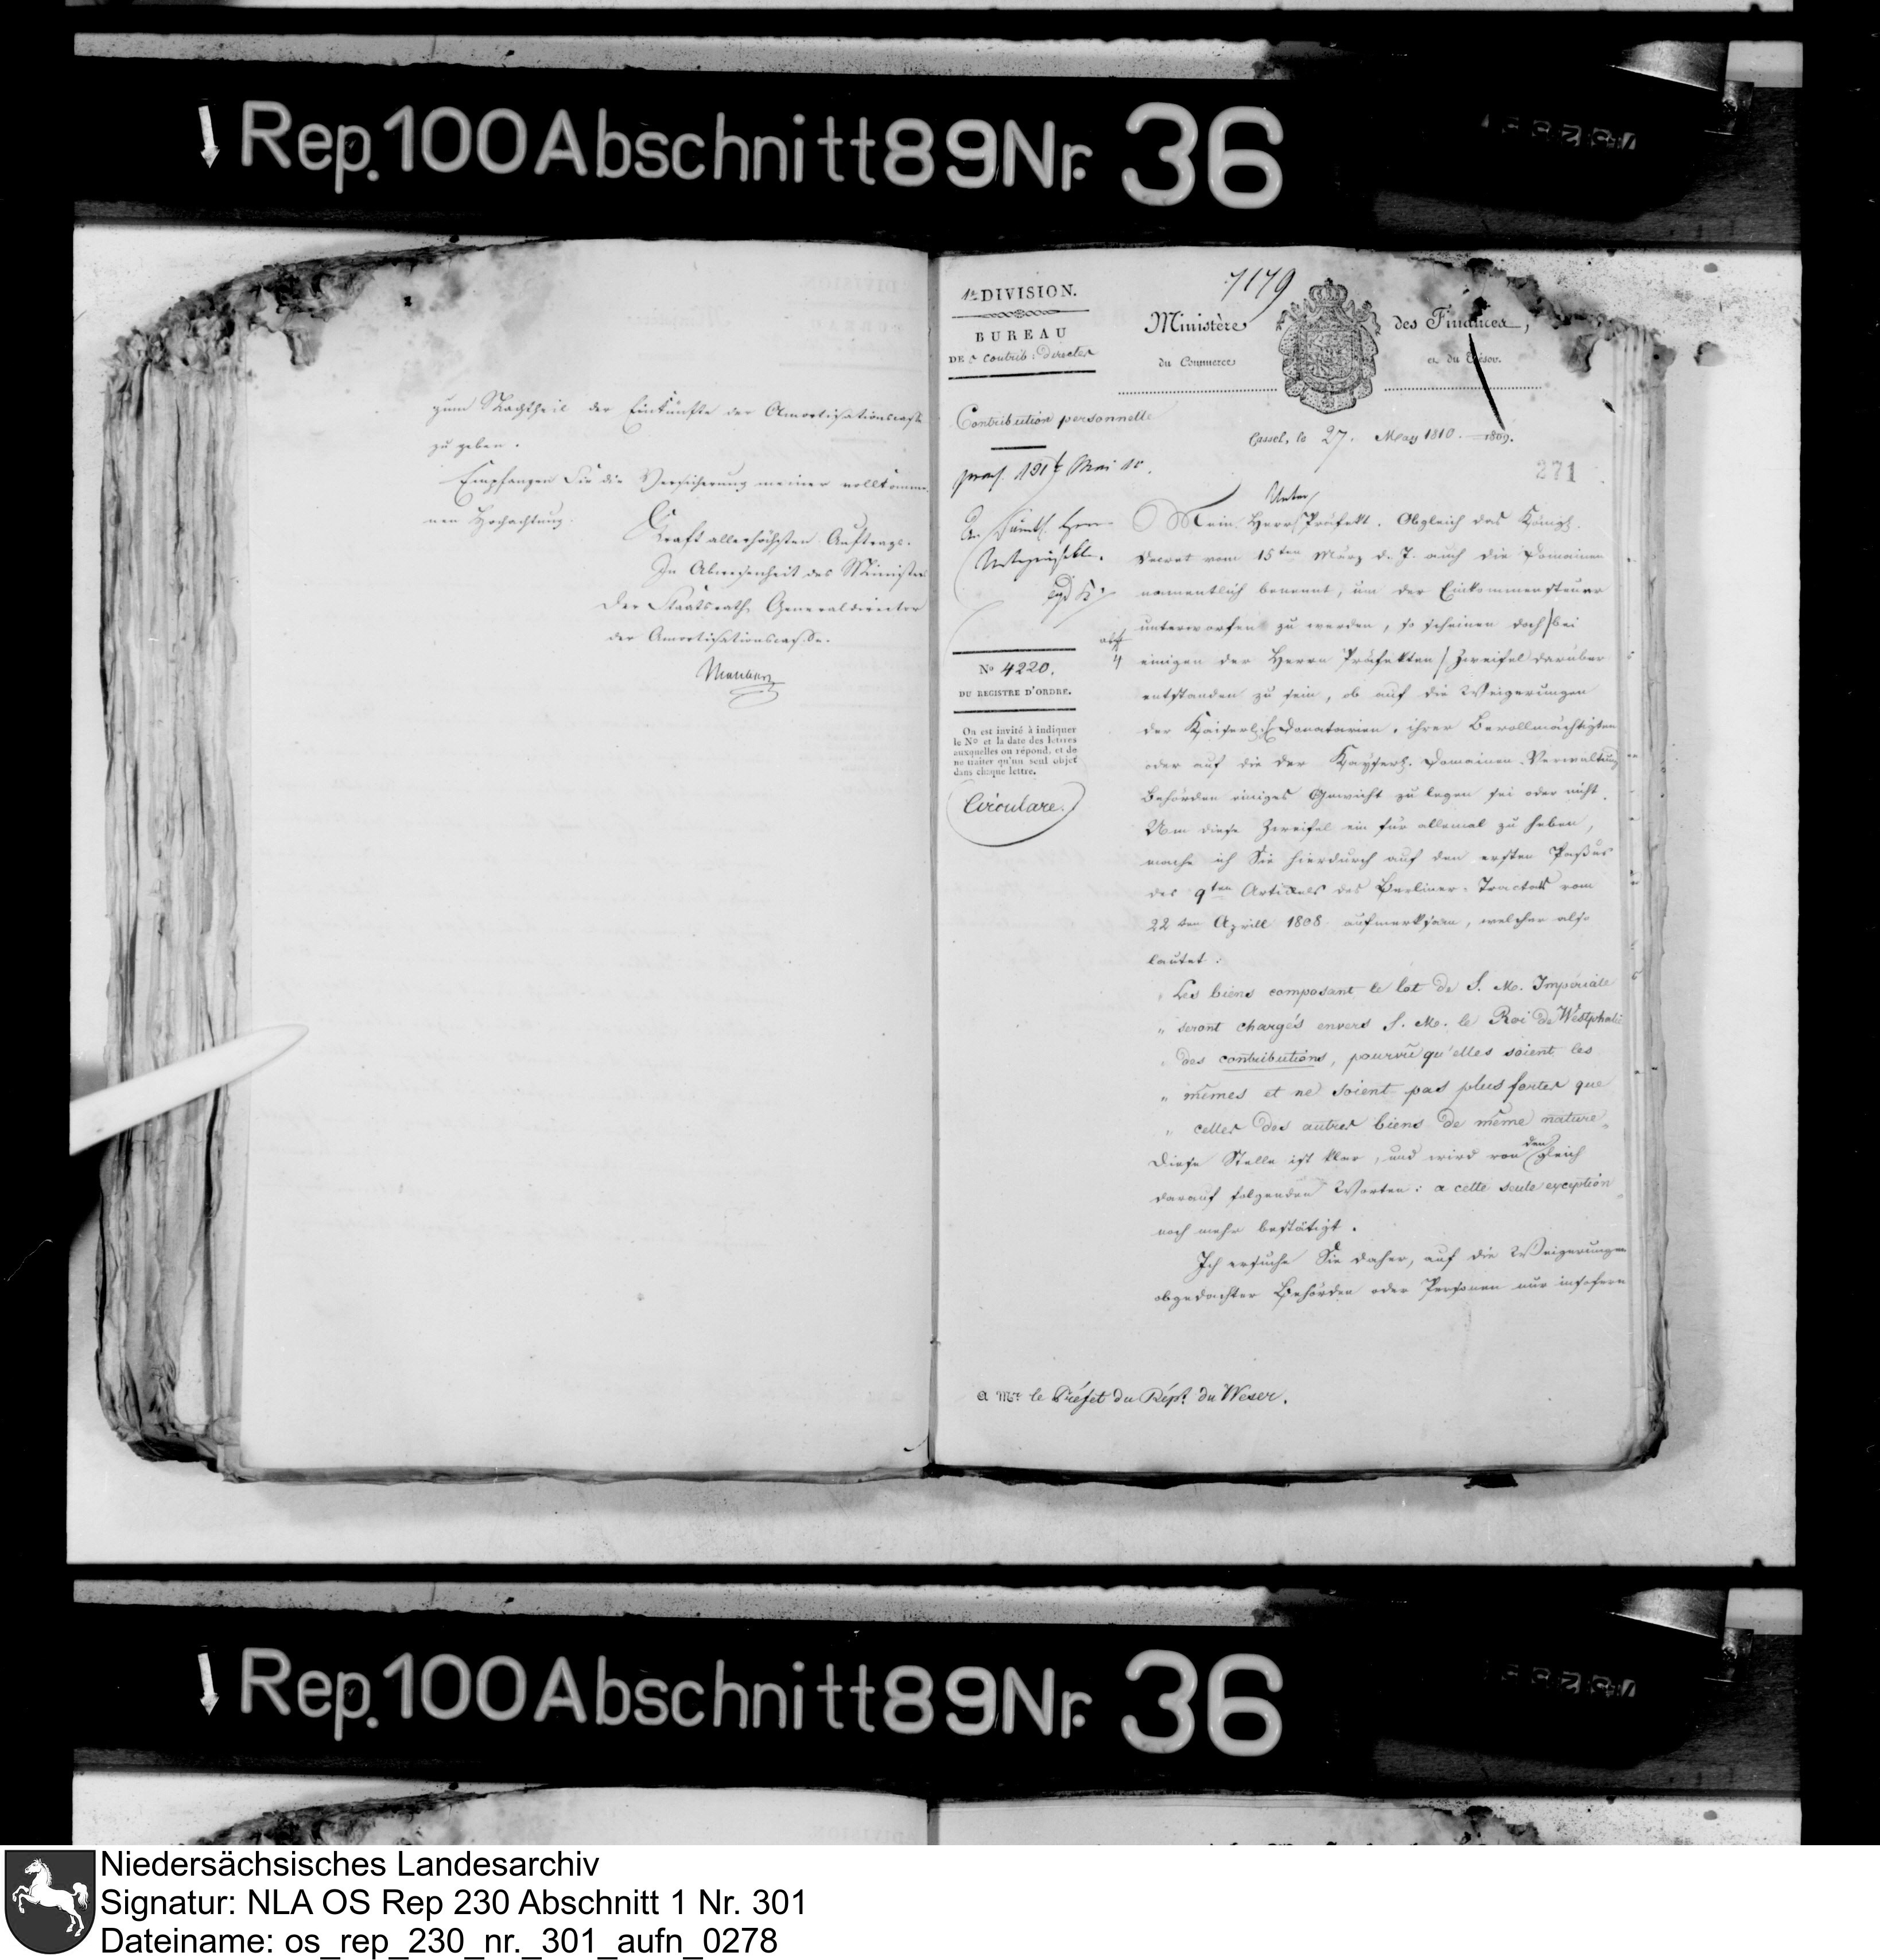 Rep. 100 Abschnitt 89 Nr. 36
zum Nachtheil der Einkünfte der Amortisationscasse
zu geben.
Empfangen Sie die Versicherung meiner vollkomme-
nen Hochachtung.
Kraft allerhöchsten Auftrags.
In Abwesenheit des Ministers
Der Staatsrath, Generaldirector
der Amortisationscasse.
1te DIVISION.
BUREAU
DEs Contrib: Directes
Contribution personnelle
No 4220.
DU REGISTRE D'ORDRE.
On est invité à indiquer
le No et la date des lettres
auxquelles on répond, et de
ne traiter qu'un seul objet
dans chaque lettre.
Circulare.
7179
Ministère des Finances,
du Commerce et du Trésor.
Cassel, le 27. May 1810. 1809.
271
Unter
Mein Herr Präfekt. Obgleich das Königl.
Decret vom 15ten März d. J. auch die Domainen
namentlich benennt, um der Einkommensteuer
unterworfen zu werden, so scheinen doch bei
einigen der Herrn Präfekten Zweifel darüber
entstanden zu sein, ob auf die Weigerungen
der Kaiserlich Donatarien, ihrer Bevollmächtigten
oder auf die der Kayserl. Domainen-Verwaltung
Behörden einiges Gewicht zu legen sei oder nicht.
Um diese Zweifel ein für allemal zu heben,
mache ich Sie hierdurch auf den ersten Paßus
des 9ten Artickels des Berliner-Tractats vom
22ten Aprill 1808 aufmerksam, welcher also
lautet:
„ Les biens composant le lot de S. M. Impériale
„ seront chargés envers S. M. le Roi de Westphalie
„ des contributions, pourvû qu'elles soient les
„ mêmes et ne soient pas plus fortes que
„ celles des autres biens de même nature„
Diese Stelle ist klar, und wird von den gleich
darauf folgenden Worten: a cette seule exception„
noch mehr bestätigt.
Ich ersuche Sie daher, auf die Weigerungen
obgedachter Behörden oder Personen nur insofern
a Mr. le Préfet du Dépt. du Weser.
Rep. 100 Abschnitt 89 Nr. 36
Niedersächsisches Landesarchiv
Signatur: NLA OS Rep 230 Abschnitt 1 Nr. 301
Dateiname: os_rep_230_nr._301_aufn_0278